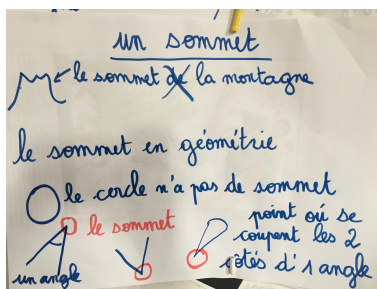 un sommet
le sommet de la montagne
le sommet en géométrie
le cercle n'a pas de sommet
le sommet
point où se
coupent les 2
côtés d'1 angle
un angle